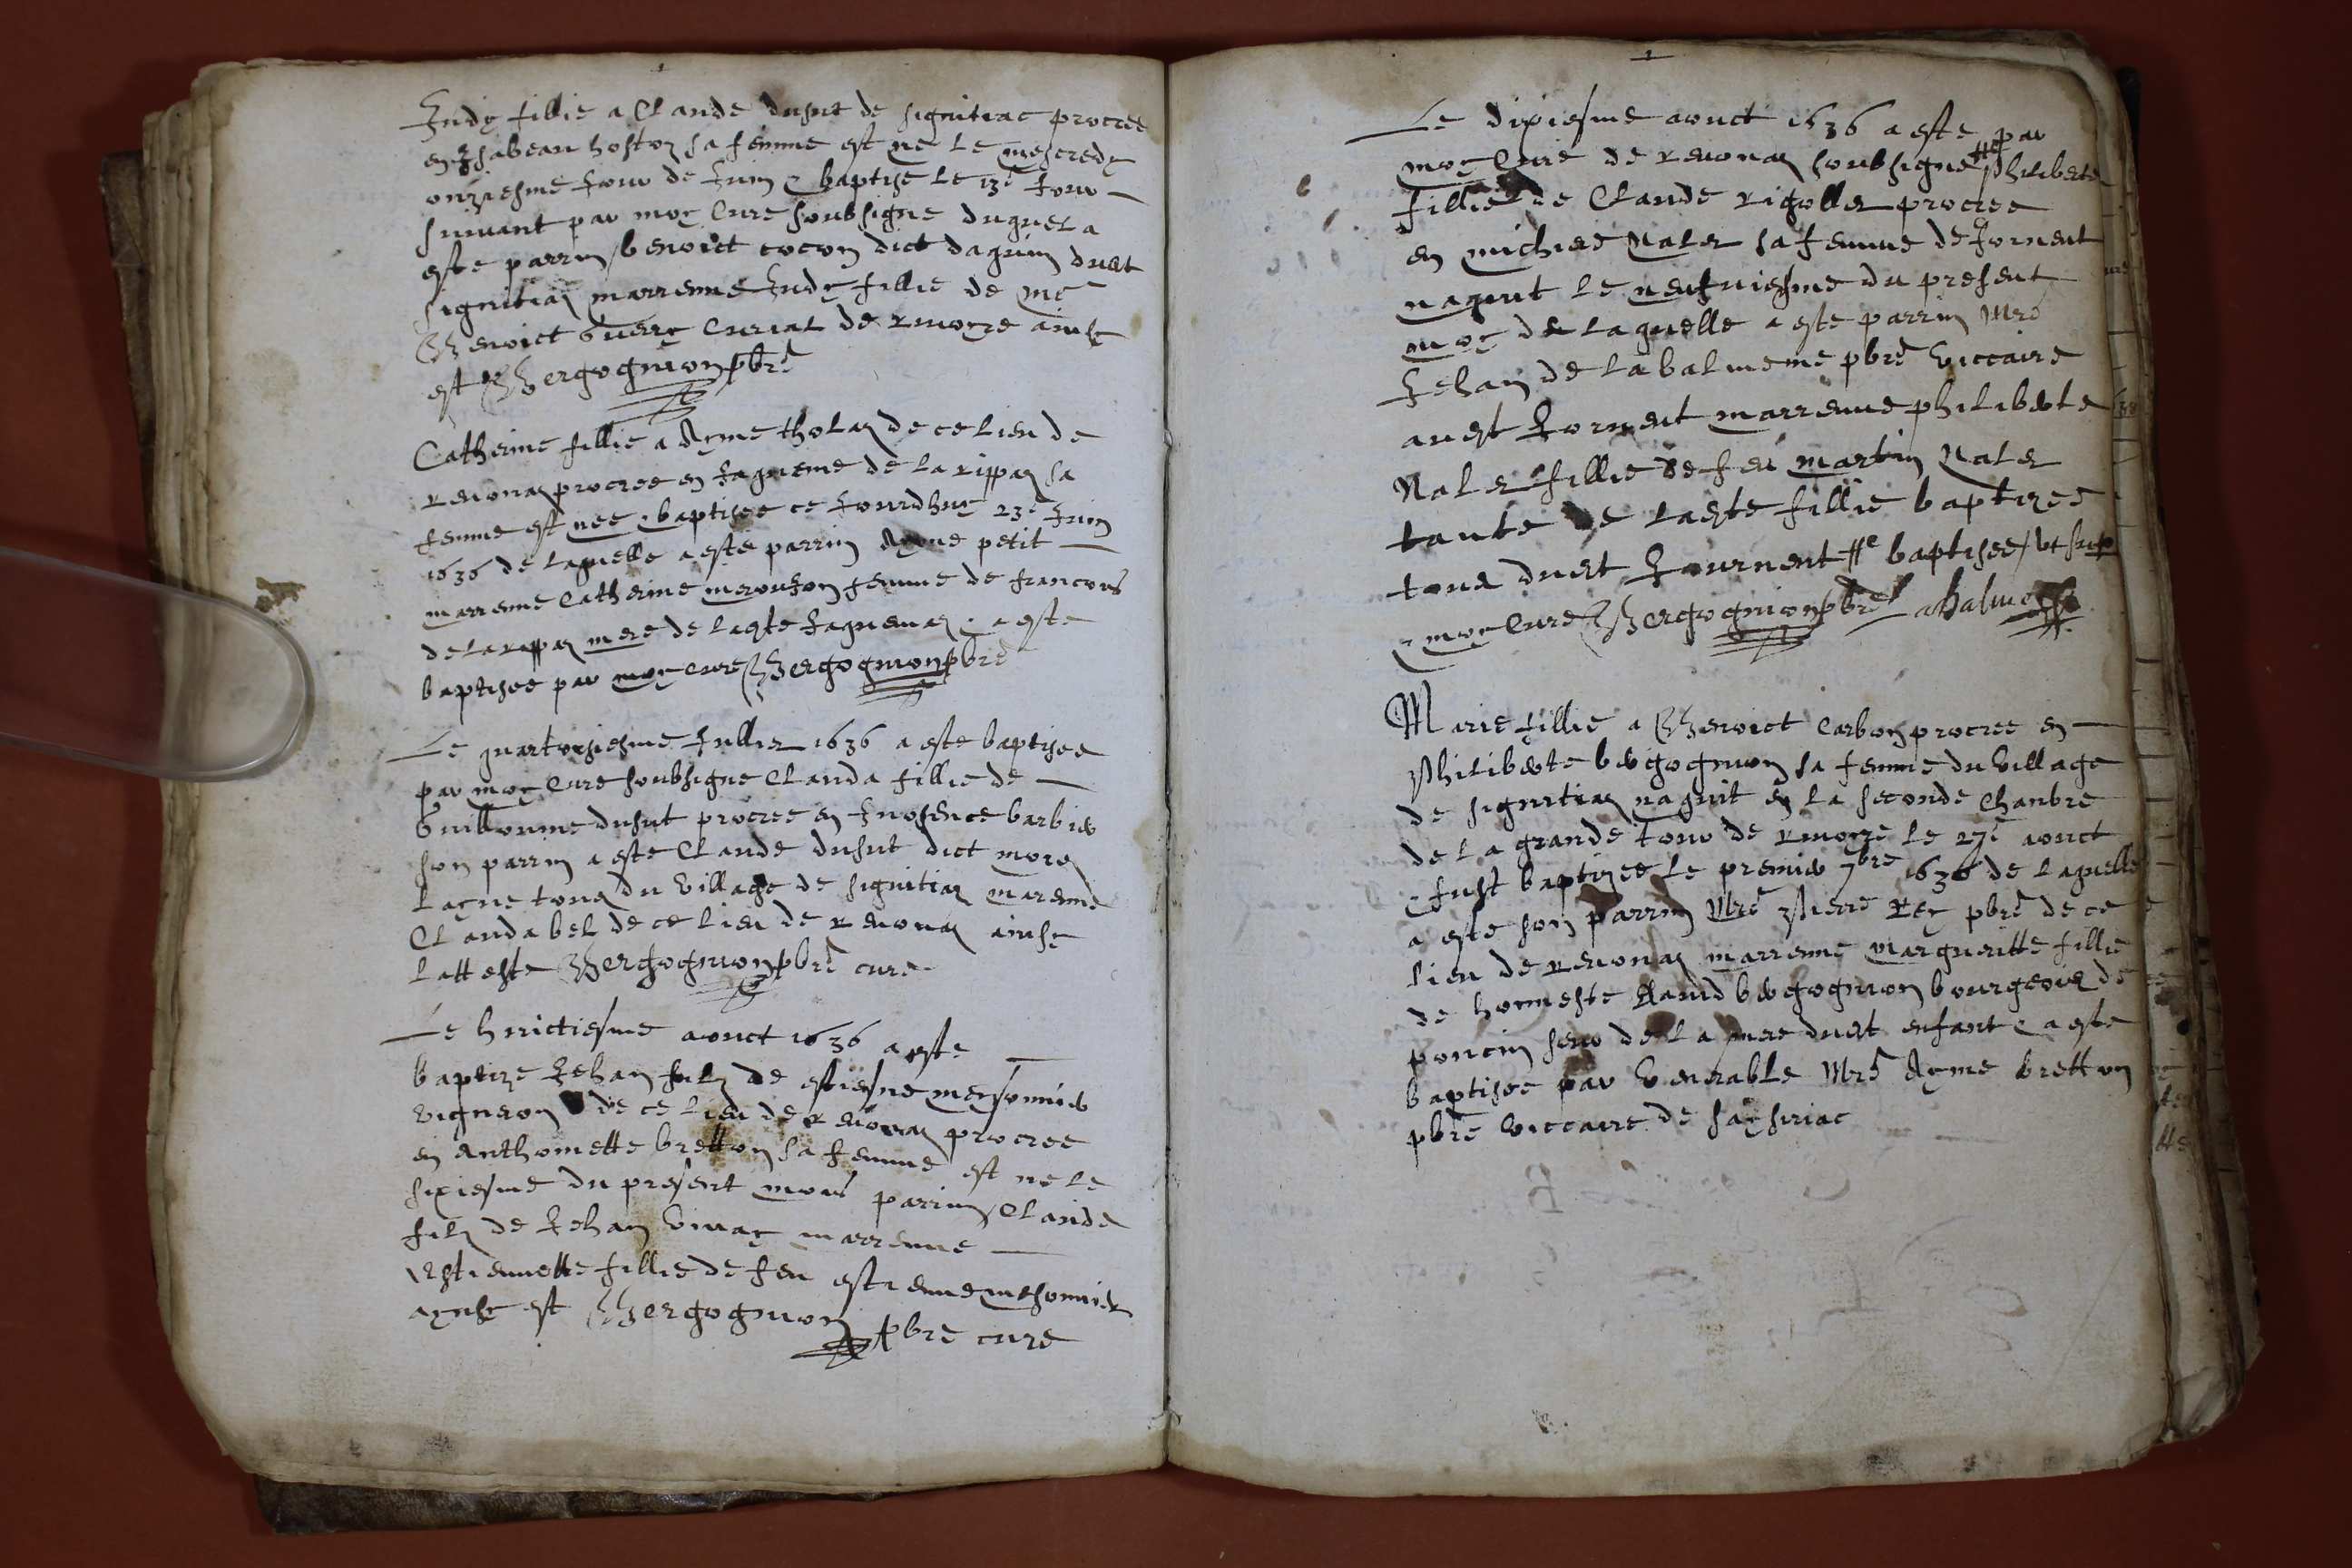 Judy fillie a Claude dusut de signitiac procree
en Jsabeau hoston sa femme est nee le mescredy
onziesme jour de juin & baptise le 13e jour
suivant par moy Cure soubsigne duquel a
este parrin benoict cocon dict dagum dudt
signitiaz marrenne Judy fillie de me
Benoict Guerry Curial de rmoyre ainsy
est Bergognion pbre
Catherine fillie a Ayme tholaz de ce lieu de
revonaz procree en Jaqueme de la rippaz sa
femme est nee & baptisee ce jourdhuy 23e juin
1636 de laquelle a este parrin Ayme petit
marrenne Catherine femme de francoys
de la rippaz mere de ladte Jaquemaz & a este
baptisee par moy cure Bergognion pbre
Le quartorsiesme jullier 1636 a este baptisee
par moy Cure soubsigne Clauda fillie de
Guillaume dusut procree en Jnosence barbier
son parrin a este Claude dusut dict morez
layne tous du village de signitiaz marenne
Clauda bel de ce lieu de revonaz ainsy
latteste Bergognion pbre cure
Le huictiesme aouct 1636 a este
baptize Jehan filz de estiesne meysonnier
vigneron de ce lieu de revonaz procree
en Anthoinette bretton sa femme est ne le
sixiesme du present moys parrin Claude
filz de Jehan vivay marrenne
Estiennette fillie de feu estienne mesonnier
aynsy est Bergognion pbre cure
Le dixiesme aouct 1636 a este par
moy Cure de revonaz soubsigne #e Philiberte
fillie de Claude rigollet procree
en michiere Nalet sa femme de Jornent
naquit le neufviesme du present
moys de laquelle a este parrin Mre
Jehan de la balme me pbre viccaire
audt Jornent marrenne philiberte
Nalet fillie de feu martin Nalet
tante de ladte fillie baptizee
tous dudt Journent #e baptisee ut sup
& moy Cure Bergognion pbre aBalme
Marie fillie a Benoict Carbon procree en
Philiberte bergognion sa femme du village
de signitiaz naquit en la seconde Chanbre
de la grande tour de rmoyre le 27e aouct
& fust baptizee le premier 7bre 1636 de laquelle
a este son parrin Mre Pierre Rey pbre de ce
lieu de revonaz marrenne margueritte fillie
de honneste Claud bergognion bourgeois de
poncin seur de la mere dudt enfant & a este
baptisee par venerable Mre Ayme bretton
pbre viccaire de saysiriac